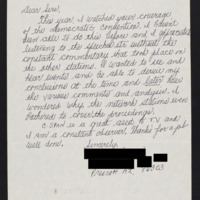 Dear Sirs,
This year I watched your coverage
of the democratic convention. I haven't
been able to do this before and I appreciated
listening to the speeches etc without the
constant commentary that took place on
the other stations. I wanted to see and
hear events and to able to derive my
conclusions at the time and later hear
the various comments and analysis. I
wondered why the network stations even
bothered to cover the proceedings.
C-SPAN is a great asset to TV and
I am a constant observer. Thanks for a job
well done.
Sincerely,
Prescott AZ,